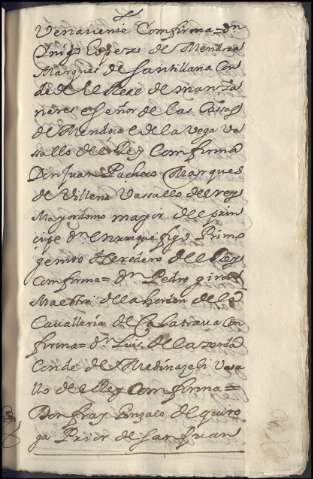 Venavente Comfirma= dn
Ynigo Lopez de Mendoza
Marques de Santillana Con
de del Real de manza
nares e señor de las Cassas
de Mendoza e de la Vega Va
sallo del Rey Comfirma
Don Juan Pacheco Marques
de Villena Vassallo del rey
Mayordomo mayor del prin
cipe dn enrrique fijo Primo
genito Heredero del Rey
Comfirma= dn Pedro giron
Maestre de la horden de la
Cavalleria de Calatrava con
firma= dn Luis de la zerda
Conde de Medinazeli Vasa
llo del Rey Comfirma=
Don fray Gonzalo de quiro
ga Prior de San Juan